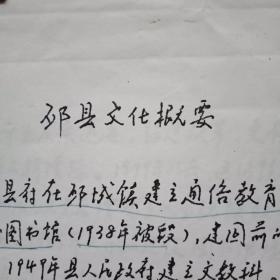 邳县文化概要
县府在邳城馆建立通俗教育
图书馆(1938年被毁),建国前
1949年县人民政府建立文教科